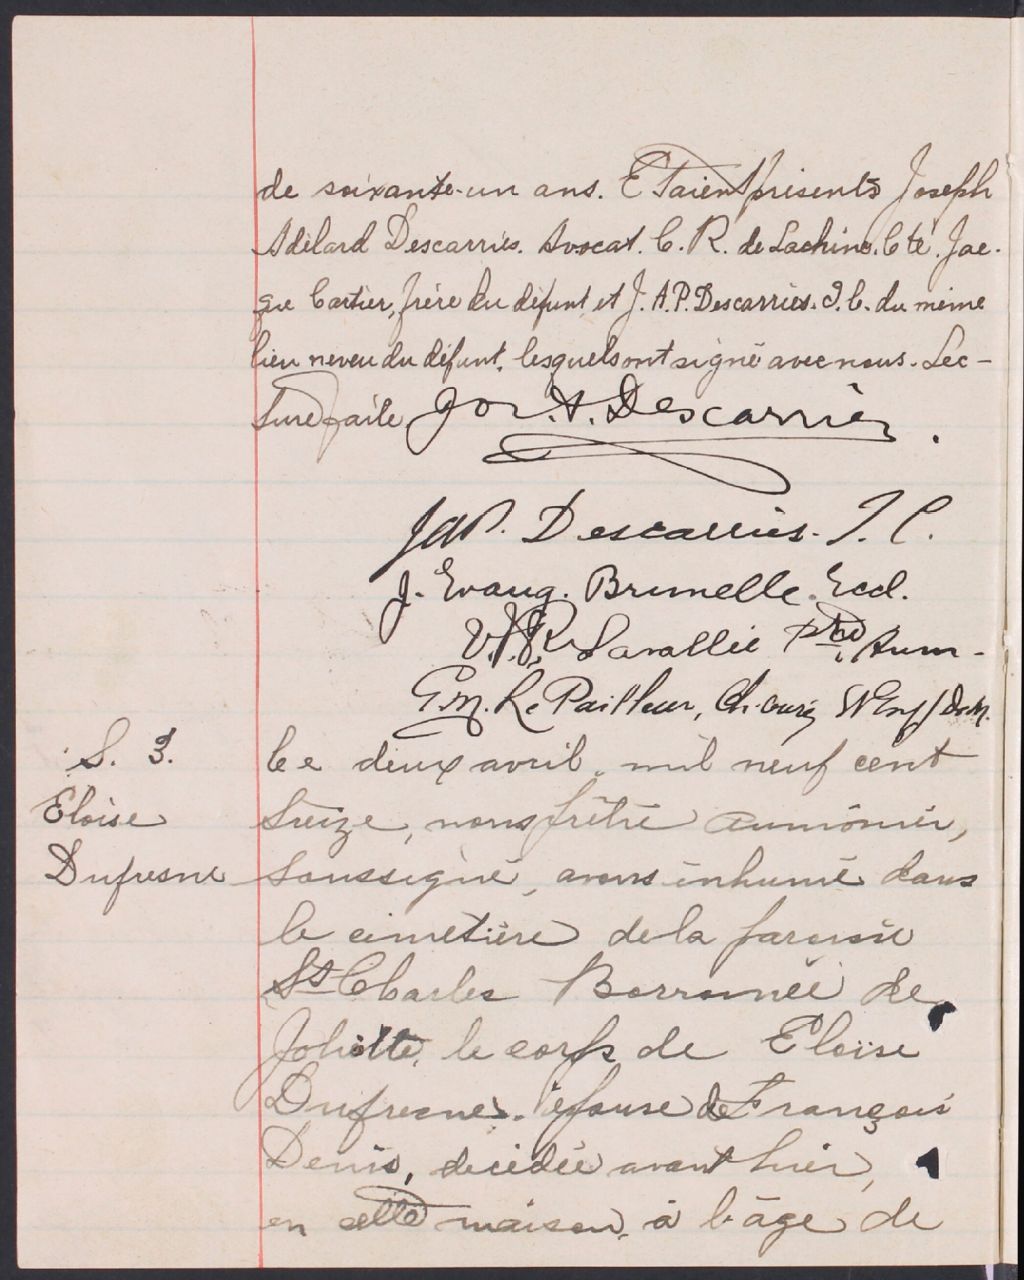 de soixante-un ans. Etaient présents Joseph
Adélard Descarries. Avocat. C. R. de Lachine. Cté. Jac-
que Cartier, frère du défunt et J. A. P. Descarries. I. C. du même
lieu neveu du défunt, lesquels ont signé avec nous. Lec-
ture faite
Jos. A. Descarries.
J A P. Descarries. I. C.
J. Evang. Brunelle. Eccl.
Lavallée Ptre, Aum-
G. M. Le Pailleur, Ch. curé
S. 3.
Eloise
Dufresne
Le deux avril, mil neuf cent
treize, nous prêtre aumônier,
soussigné, avons inhumé dans
le cimetière de la paroisse
St Charles Borromée de
Joliette, le corps de Eloïse
Dufresne, épouse de François
Denis, décédée avant hier,
en cette maison, à l'âge de